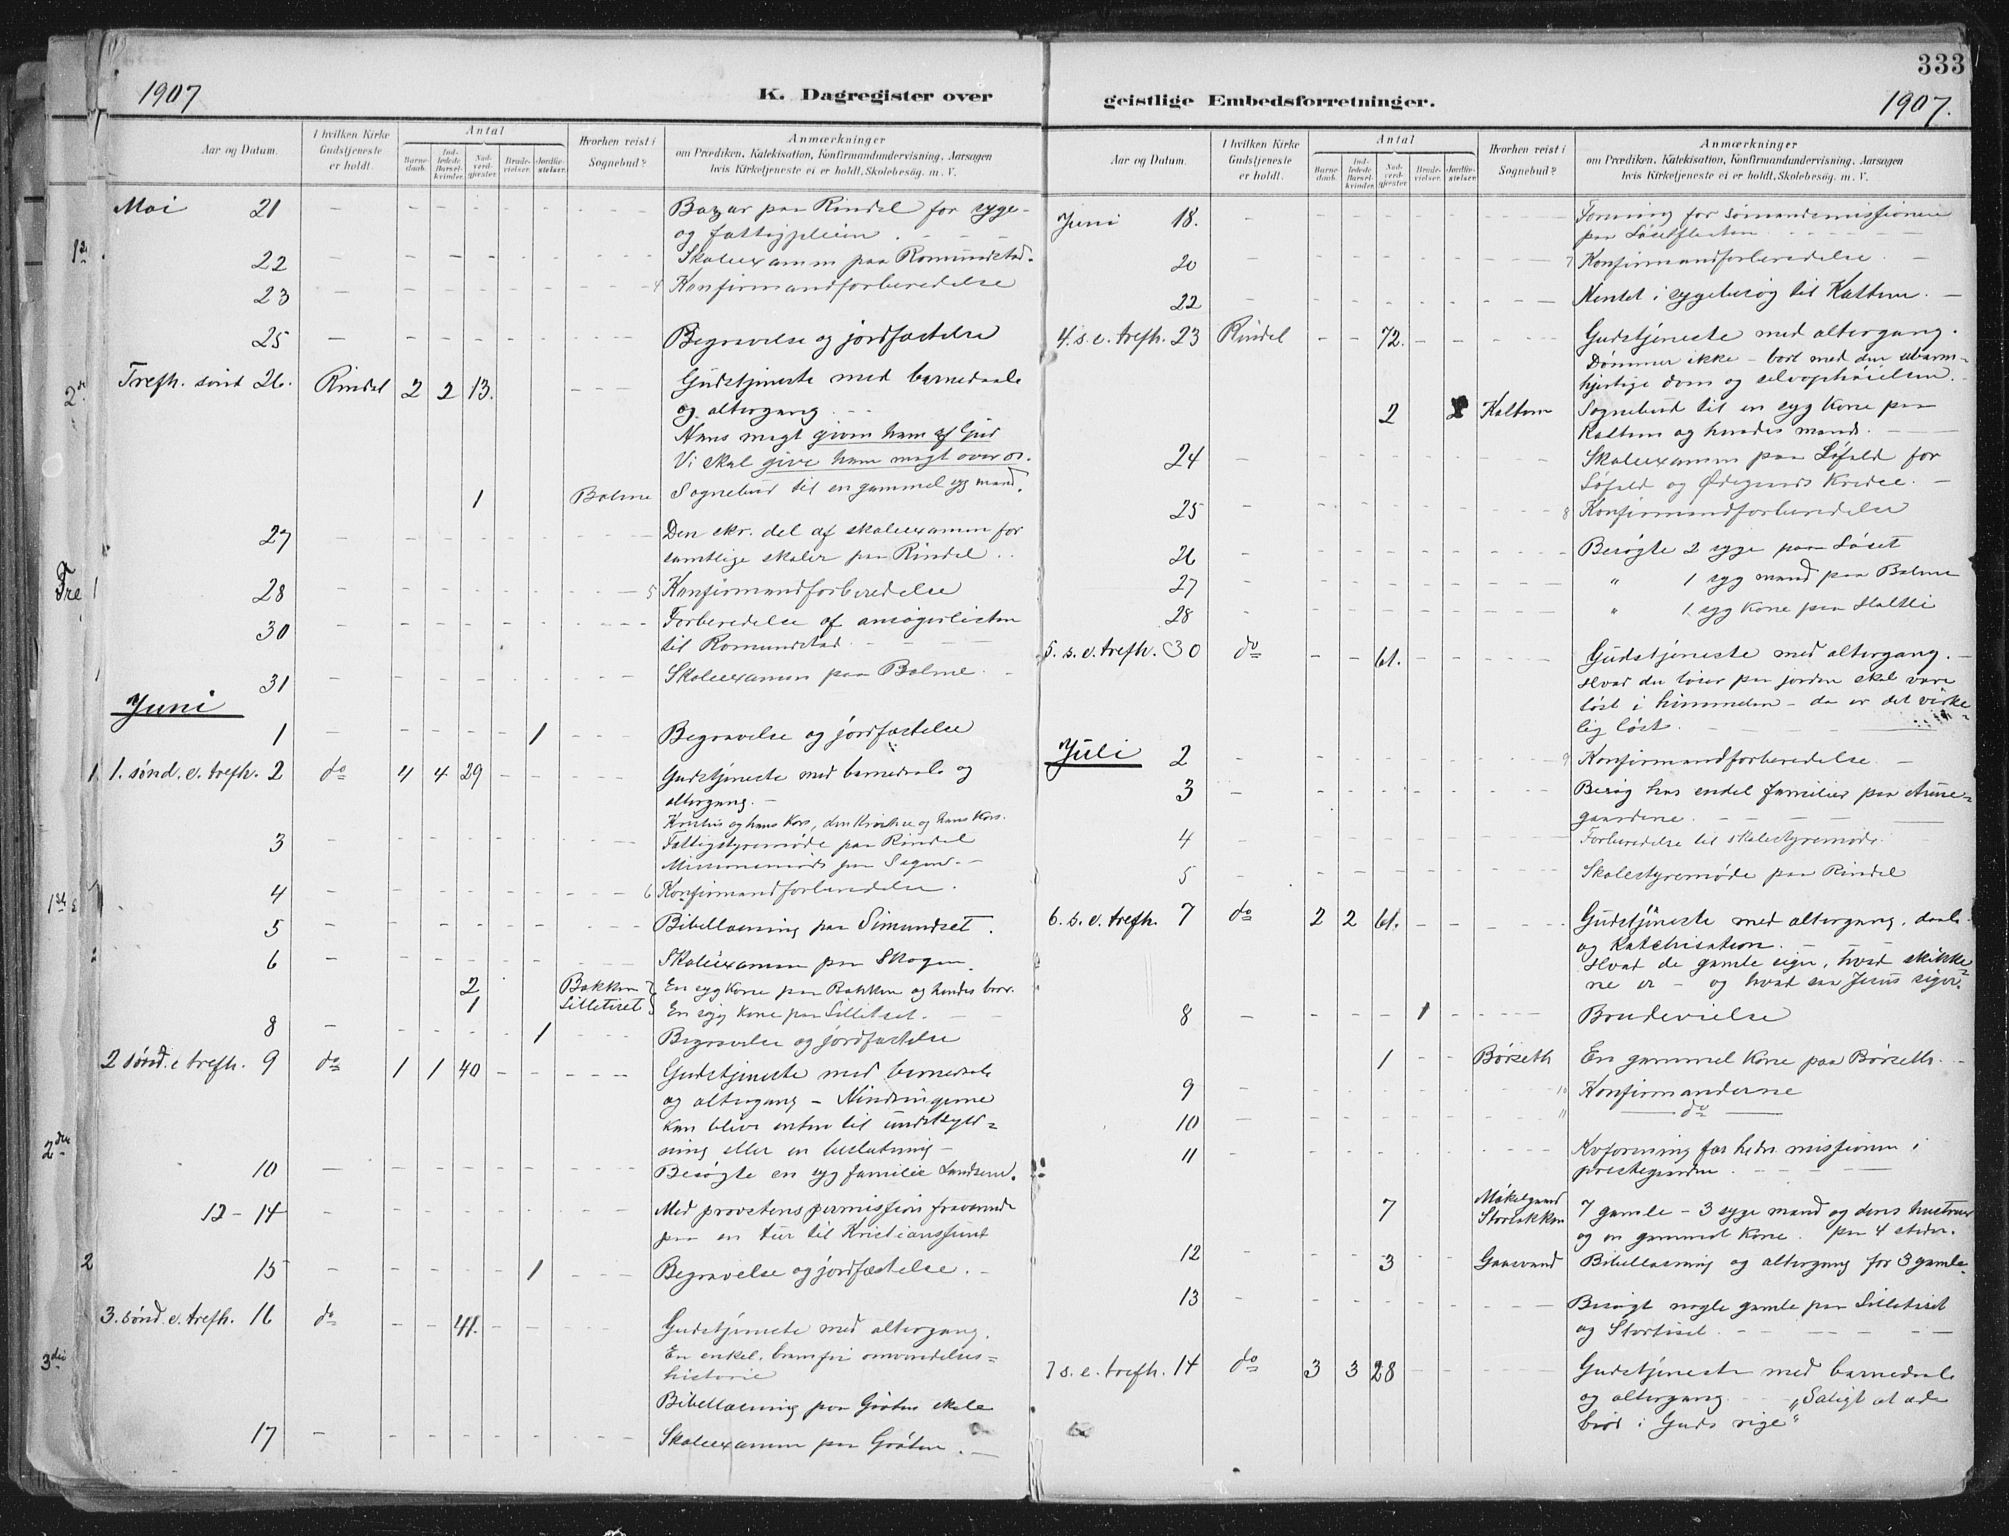 333
1907
K. Dagregister over
geistlige Embedsforretninger.
1907.
Aar og Datum.
I hvilken Kirke
Gudstjeneste
er holdt.
Antal
Barne-
daab.
Ind-
ledede
Barsel-
kvinder.
Nad-
verd-
gjester
Brude-
vielser.
Jordfæ-
stelser.
Hvorhen reist i
Sognebud?
Anmærkninger
om Prædiken, Katekisation, Konfirmandundervisning, Aarsagen
hvis Kirketjeneste ei er holdt, Skolebesøg, m. V.
Mai 21 Bazar paa Rindel for syge-
og fattigpleien.
22 Skoleexamen paa Romundstad.
23 4 Konfirmandforberedelse
25 Begravelse og jordfæstelse
Trefh. sønd 26. Rindel 2 2 13. Gudstjeneste med barnedaab
og altergang.
Hans magt given ham af Gud
Vi skal give ham magt over os.
1 Bolme Sognebud til en gammel syg mand.
27 Den skr. del af skoleexamen for
samtlige skoler paa Rindel.
28 5 Konfirmandforberedelse
30 Forberedelse af ansøgerlisten
til Romundstad
31 Skoleexamen paa Bolme.
Juni
1 1 Begravelse og jordfæstelse
1. sønd. e. trefh. 2 do 4 4 29 Gudstjeneste med barnedaab og
altergang.
Kristus og hans kors, den kristne og hans kors.
3 Fattigstyremøde paa Rindel
4 6 Konfirmandforberedelse.
5 Bibellæsning paa Simundset.
6 Skoleexamen paa Skogen.
2 Bakken En syg kone paa Bakken og hendes bror.
1 Lilletiset En syg kone paa Lilletiset.
8 1 Begravelse og jordfæstelse
2 sønd. e trefh. 9 do 1 1 40 Gudstjeneste med barnedaab
og altergang – Hindringerne
kan blive enten til undskyld=
ning eller en beslutning –
10 Besøgte en syg familie Landsem.
12-14 Med provstens permission fraværende
paa en tur til Kristianssund
15 1 Begravelse og jordfæstelse.
3. sønd. e. trefh. 16 do 41. Gudstjeneste med altergang.
En enkel, omvendelses=
historie
Bibellæsning paa Grøten skole
17 Skoleexamen paa Grøten.
Aar og Datum.
I hvilken Kirke
Gudstjeneste
er holdt.
Antal
Barne-
daab.
Ind-
ledede
Barsel-
kvinder.
Nad-
verd-
gjester
Brude-
vielser.
Jordfæ-
stelser.
Hvorhen reist i
Sognebud?
Anmærkninger
om Prædiken, Katekisation, Konfirmandundervisning, Aarsagen
hvis Kirketjeneste ei er holdt, Skolebesøg, m. V.
Juni 18. Forening for sømandsmissionen
paa Løsetflesten
20 7 Konfirmandforberedelse.
22 Hentet i sygebesøg til Kattem.
4. s. e. trefh. 23 Rindel 72. Gudstjeneste med altergang.
Dømmer ikke – bort med den ubarm=
hjertige dom og selvophøielsen.
2 Kattem Sognebud til en syg kone paa
Kattem og hendes mand.
24 Skoleexamen paa Løfald for
Løfald og Ødegaards kredse.
25 8 Konfirmandforberedelse
26 Besøgte 2 syge paa Løset
27 " 1 syg mand paa Bolme
28 " 1 syg kone paa Haltli
5. s. e. trefh. 30 do 61. Gudstjeneste med altergang.
Hvad du løser paa jorden skal være
løst i himmelen – da er det virke=
lig løst.
Juli 2 9 Konfirmandforberedelse
3 Besøg hos endel familier paa Aune=
gaardene.
4 Forberedelse til skolestyremøde.
5 Skolestyremøde paa Rindel
6. s. e. trefh. 7 do 2 2 61. Gudstjeneste med altergang, daab
og katechisation.
Hvad de gamle siger, hvad skikke=
ne er – og hvad saa Jesus siger.
8 1 Brudevielse
1 Børseth En gammel kone paa Børseth.
9 10 Konfirmanderne
10 11 do
11 Kvforening for hedn.missionen i
prestegaarden.
7 7 gamle – 3 syge mænd og deres hustruer
og en gammel kone. paa 4 steder.
12 3 Gaasvand Bibellæsning og altergang for 3 gamle.
13 Besøgt nogle gamle paa Lilletiset
og Stortiset.
7 s. e. trefh. 14 do 3 3 28 Gudstjeneste med barnedaab
og altergang „Saligt at æde
brød i Guds rige“